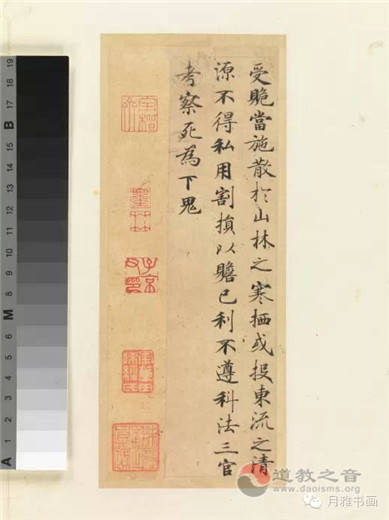 受賕當施散於山林之寒栖或投東流之清
源不得私用割損以贍己利不遵科法三官
考察死為下鬼
子京
墨林
道教之音
www.daoisms.org
月雅书画
A 1 2 3 4 5 6 M 8 9 10 11 12 13 14 15 B 17 18 19